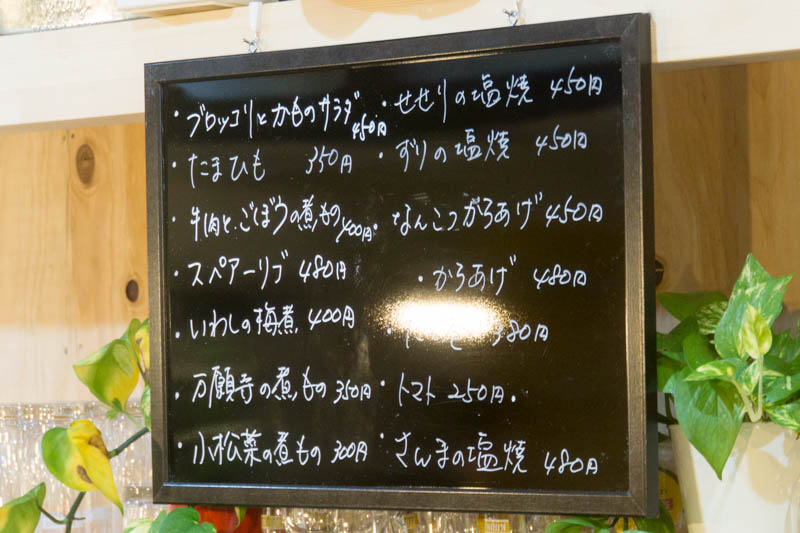 ・ブロッコリとかものサラダ 450円
・たまひも 350円
・牛肉とごぼうの煮もの 400円
・スペアーリブ 480円
・いわしの梅煮 400円
・万願寺の煮もの 350円
・小松菜の煮もの 300円
・せせりの塩焼 450円
・ずりの塩焼 450円
・なんこつがらあげ 450円
・からあげ 480円
380円
・トマト 250円.
・さんまの塩焼 480円